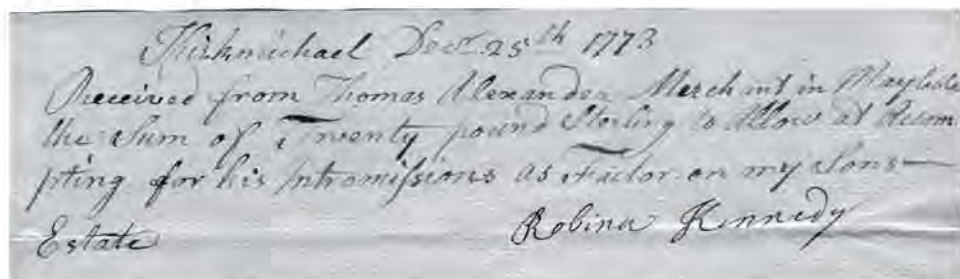 Kirkmichael Decr. 25th 1773
Received from Thomas Alexander Merchant in Maybole
the Sum of Twenty pound Sterling to Allow at Accom
pting for his Intromissions as Factor on my Sons
Estate Robina Kennedy